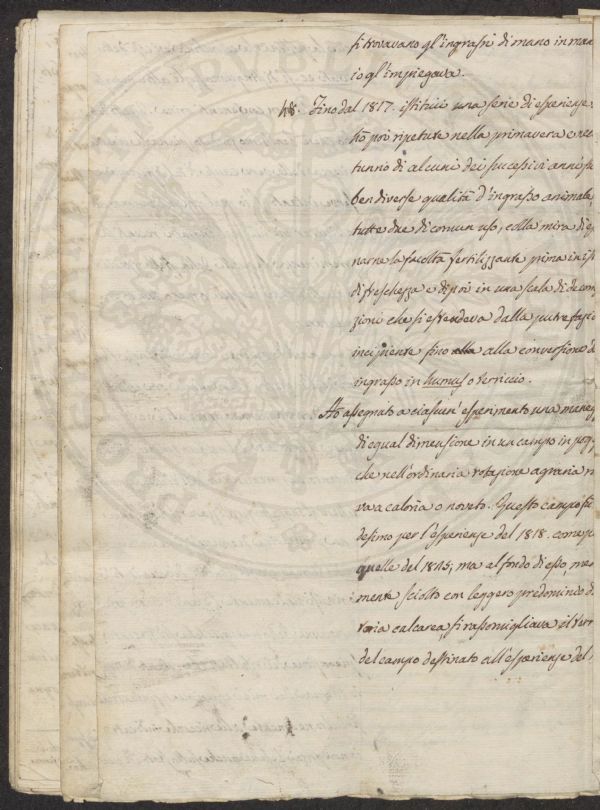 si trovavano gl'ingrassi di mano in man
io gl'impiegava.
Fino dal 1817. istituii una serie di esperienze
poi ripetute nella primavera e
tunno di alcuni dei successivi anni su
ben diverse qualità d'ingrasso animale,
tutte due di comun uso, colla mira di
narne la facoltà fertilizzante prima in ist
di freschezza e di poi in una scala di decom
zione che si estendeva dalla putrefazio
incipiente fino alla alla conversione d
ingrasso in humus o terriccio.
Ho assegnato a ciascun' esperimento una
di egual dimensione in un campo in
che nell'ordinaria rotazione agraria
va a caloria o noveto. Questo campo fu
desimo per l'esperienze del 1818. come p
quelle del 1815; ma al fondo di esso,
mente sciolto con leggero predominio d
teria calcarea si rassomigliava il terr
del campo destinato all'esperienze del